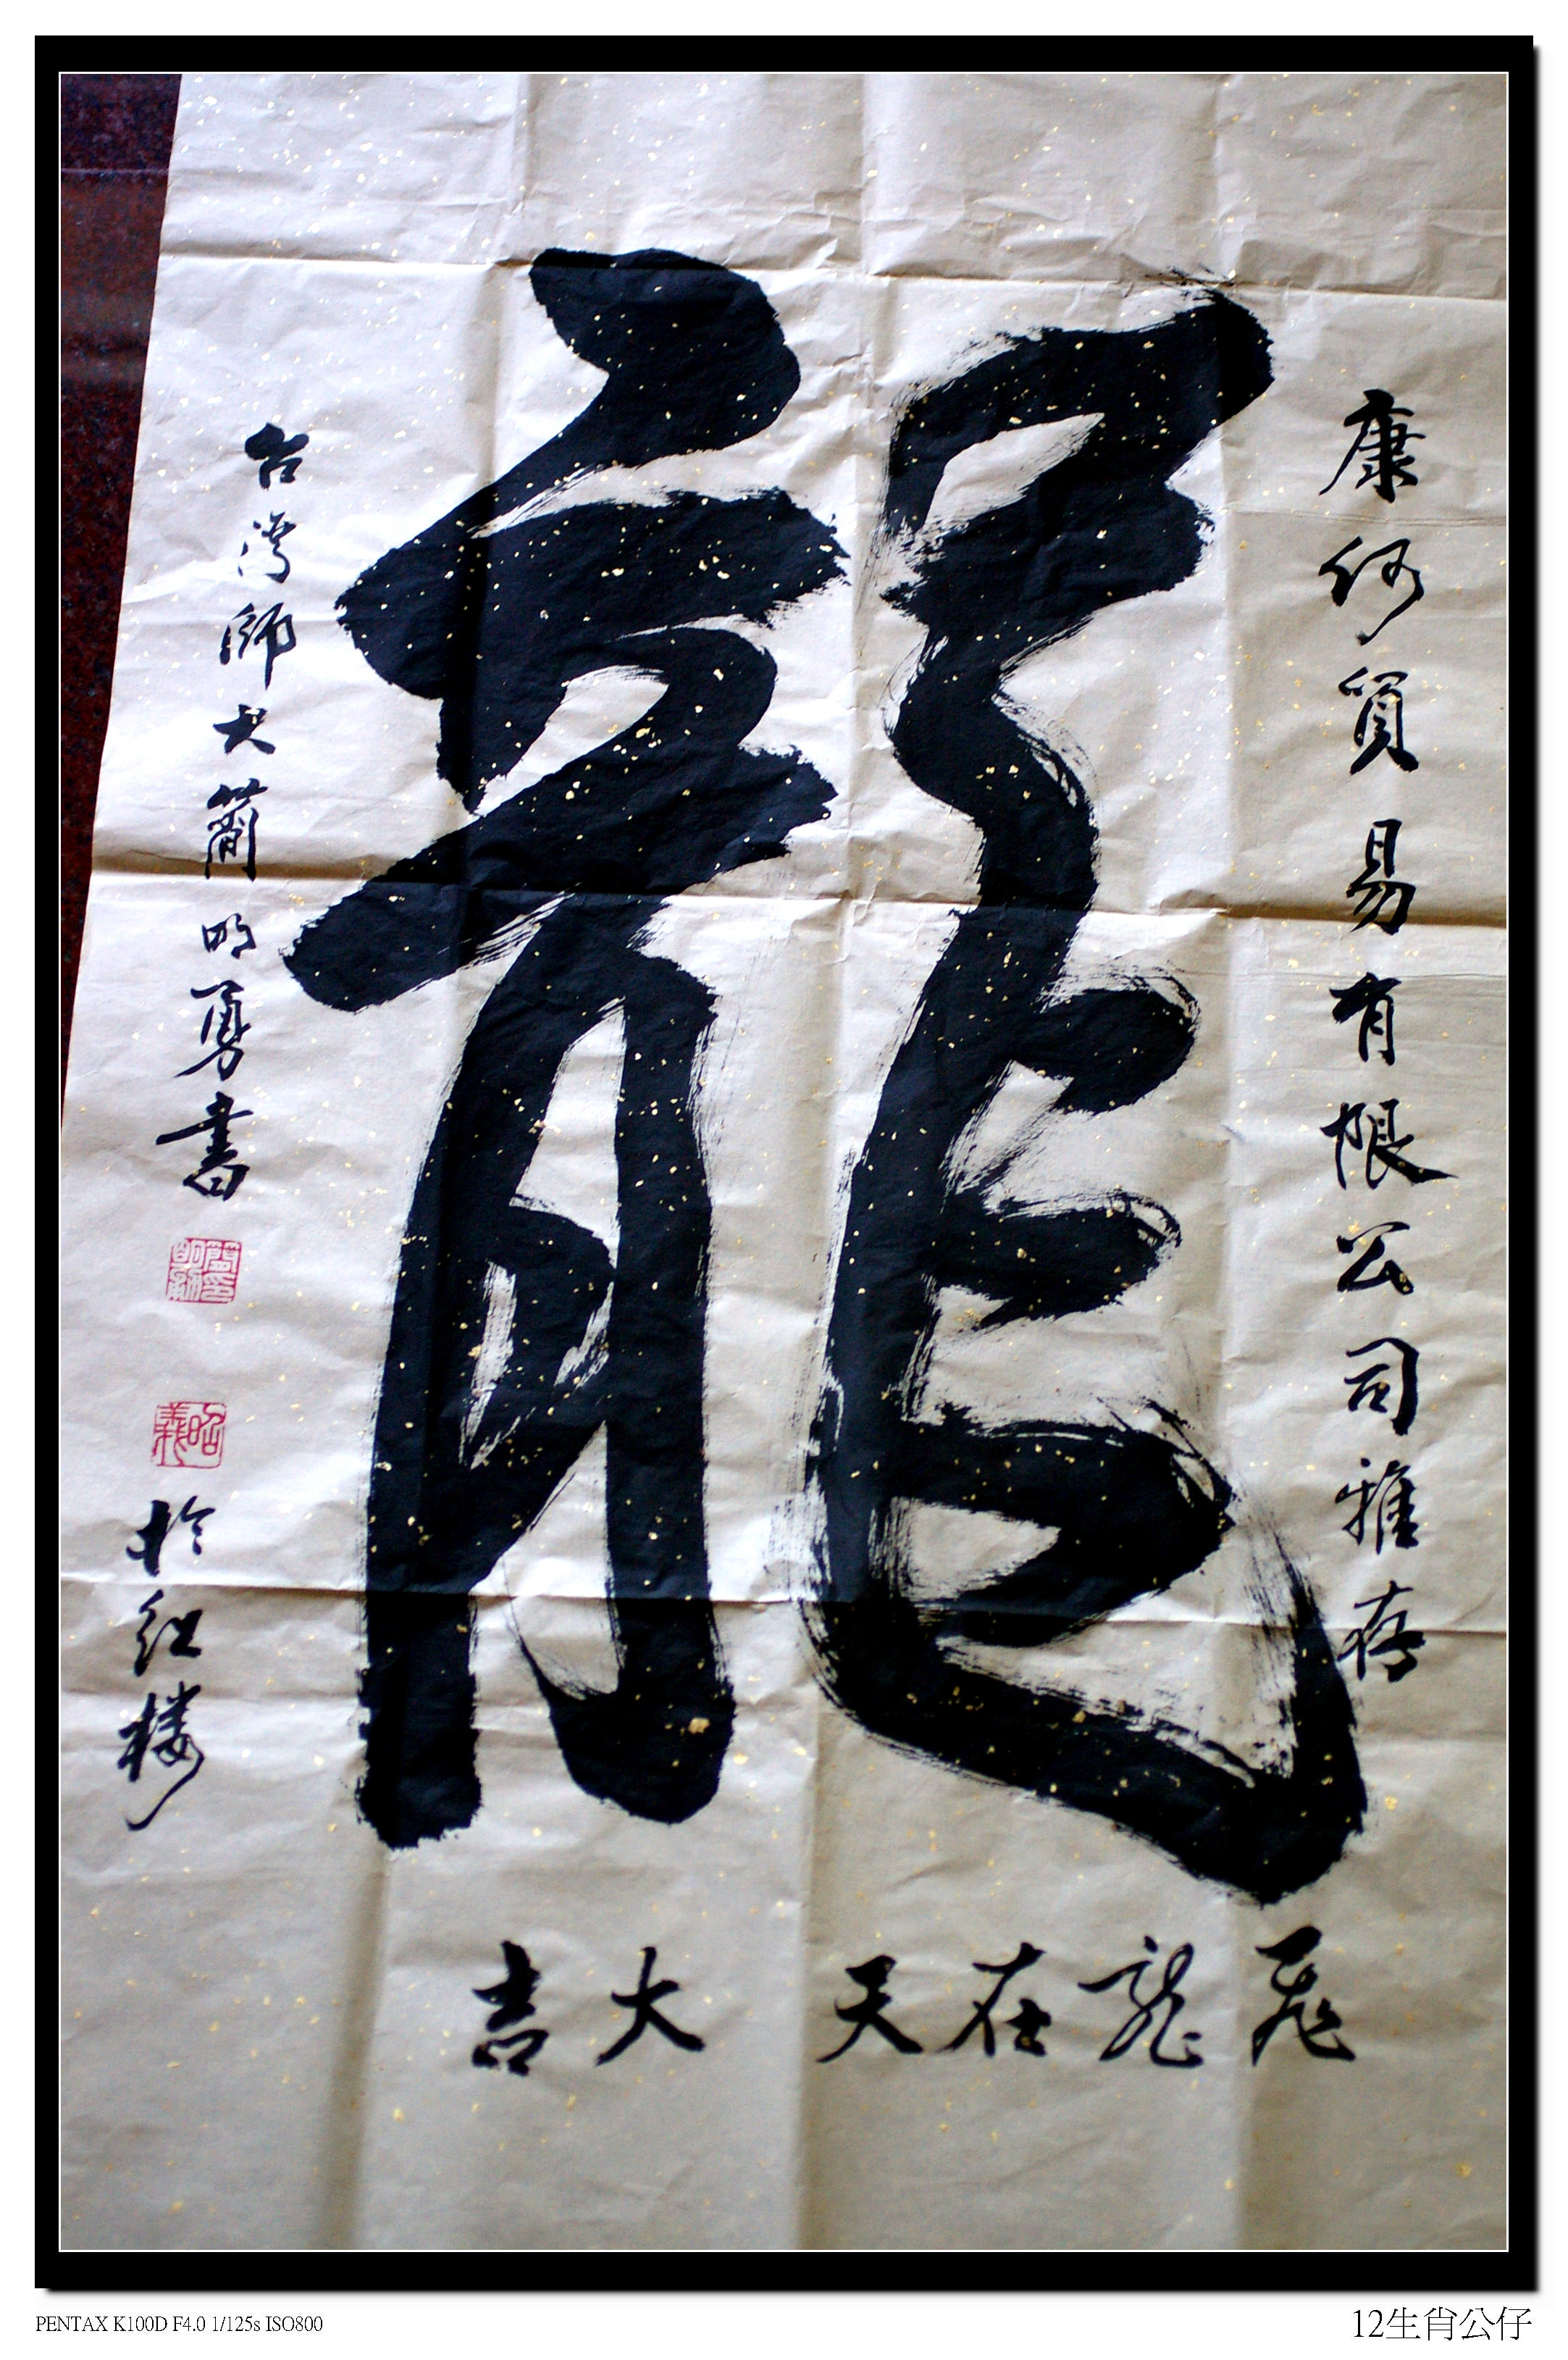 康何貿易有限公司雅存
龍
飛龍在天 大吉
台灣師大簡明勇書
於紅樓
PENTAX K100D F4.0 1/125s ISO800
12生肖公仔